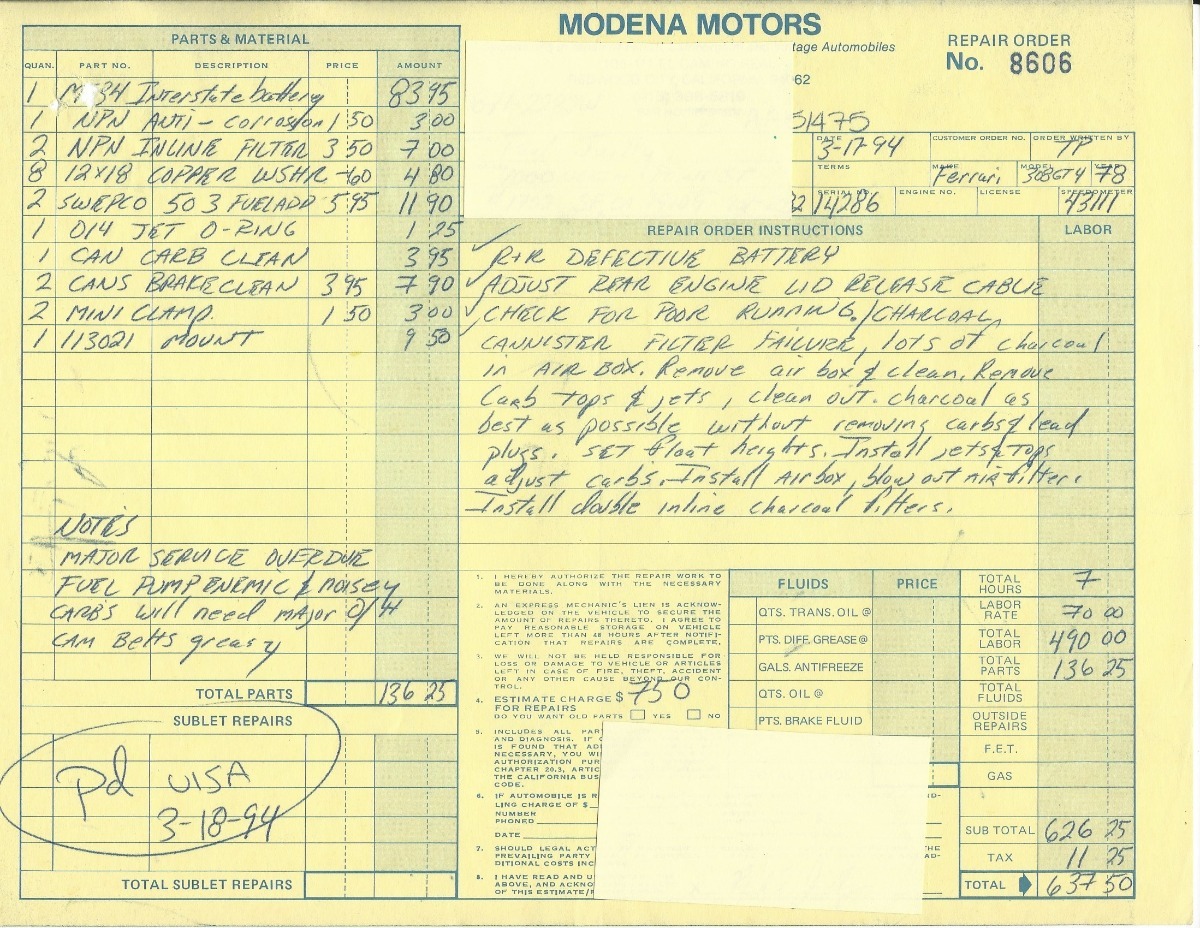 MODENA MOTORS
tage Automobiles
REPAIR ORDER
No. 8606
62
51475
PARTS & MATERIAL
QUAN. PART NO. DESCRIPTION PRICE AMOUNT
1 Interstate battery 83 95
1 NPN ANTI-corrosion 1 50 3 00
2 NPN INLINE FILTER 3 50 7 00
8 12x18 COPPER WSHR .60 4 80
2 SWEPCO 503 FUELADD 5 95 11 90
1 014 JET O-RING 1 25
1 CAN CARB CLEAN 3 95
2 CANS BRAKECLEAN 3 95 7 90
2 MINI CLAMP. 1 50 3 00
1 113021 MOUNT 9 50
NOTES
MAJOR SERVICE OVERDUE
FUEL PUMP ENEMIC & NOISEY
CARB'S will need MAJOR O/H
CAM Belts greasy
TOTAL PARTS 136 25
SUBLET REPAIRS
Pd VISA
3-18-94
TOTAL SUBLET REPAIRS
DATE 3-17-94 CUSTOMER ORDER NO. ORDER WRITTEN BY TP
TERMS MAKE Ferrari MODEL 308GT4 YEAR 78
SERIAL NO. 14286 ENGINE NO. LICENSE SPEEDOMETER 43111
REPAIR ORDER INSTRUCTIONS LABOR
✓ R+R DEFECTIVE BATTERY
✓ ADJUST REAR ENGINE LID RELEASE CABLE
✓ CHECK FOR POOR RUNNING./CHARCOAL
CANNISTER FILTER FAILURE, lots of charcoal
in AIR BOX. Remove air box & clean. Remove
Carb tops & jets, clean out. charcoal as
best as possible without removing carbs & lead
plugs. SET float heights. Install jets & tops
adjust carbs. Install Airbox, blow out air filter.
Install double inline charcoal filters.
1. I HEREBY AUTHORIZE THE REPAIR WORK TO
BE DONE ALONG WITH THE NECESSARY
MATERIALS.
2. AN EXPRESS MECHANIC'S LIEN IS ACKNOW-
LEDGED ON THE VEHICLE TO SECURE THE
AMOUNT OF REPAIRS THERETO. I AGREE TO
PAY REASONABLE STORAGE ON VEHICLE
LEFT MORE THAN 48 HOURS AFTER NOTIFI-
CATION THAT REPAIRS ARE COMPLETE.
3. WE WILL NOT BE HELD RESPONSIBLE FOR
LOSS OR DAMAGE TO VEHICLE OR ARTICLES
LEFT IN CASE OF FIRE, THEFT, ACCIDENT
OR ANY OTHER CAUSE BEYOND OUR CON-
TROL.
4. ESTIMATE CHARGE $ 750
FOR REPAIRS
DO YOU WANT OLD PARTS YES NO
5. INCLUDES ALL PAR
AND DIAGNOSIS. IF
IS FOUND THAT AD
NECESSARY, YOU WI
AUTHORIZATION PUR
CHAPTER 20.3, ARTIC
THE CALIFORNIA BUS
CODE.
6. IF AUTOMOBILE IS R
LING CHARGE OF $
NUMBER
PHONED
DATE
7. SHOULD LEGAL ACT
PREVAILING PARTY
DITIONAL COSTS INC
8. I HAVE READ AND U
ABOVE, AND ACKNO
OF THIS ESTIMATE/
FLUIDS PRICE
QTS. TRANS. OIL @
PTS. DIFF. GREASE @
GALS. ANTIFREEZE
QTS. OIL @
PTS. BRAKE FLUID
TOTAL HOURS 7
LABOR RATE 70 00
TOTAL LABOR 490 00
TOTAL PARTS 136 25
TOTAL FLUIDS
OUTSIDE REPAIRS
F.E.T.
GAS
SUB TOTAL 626 25
TAX 11 25
TOTAL 637 50